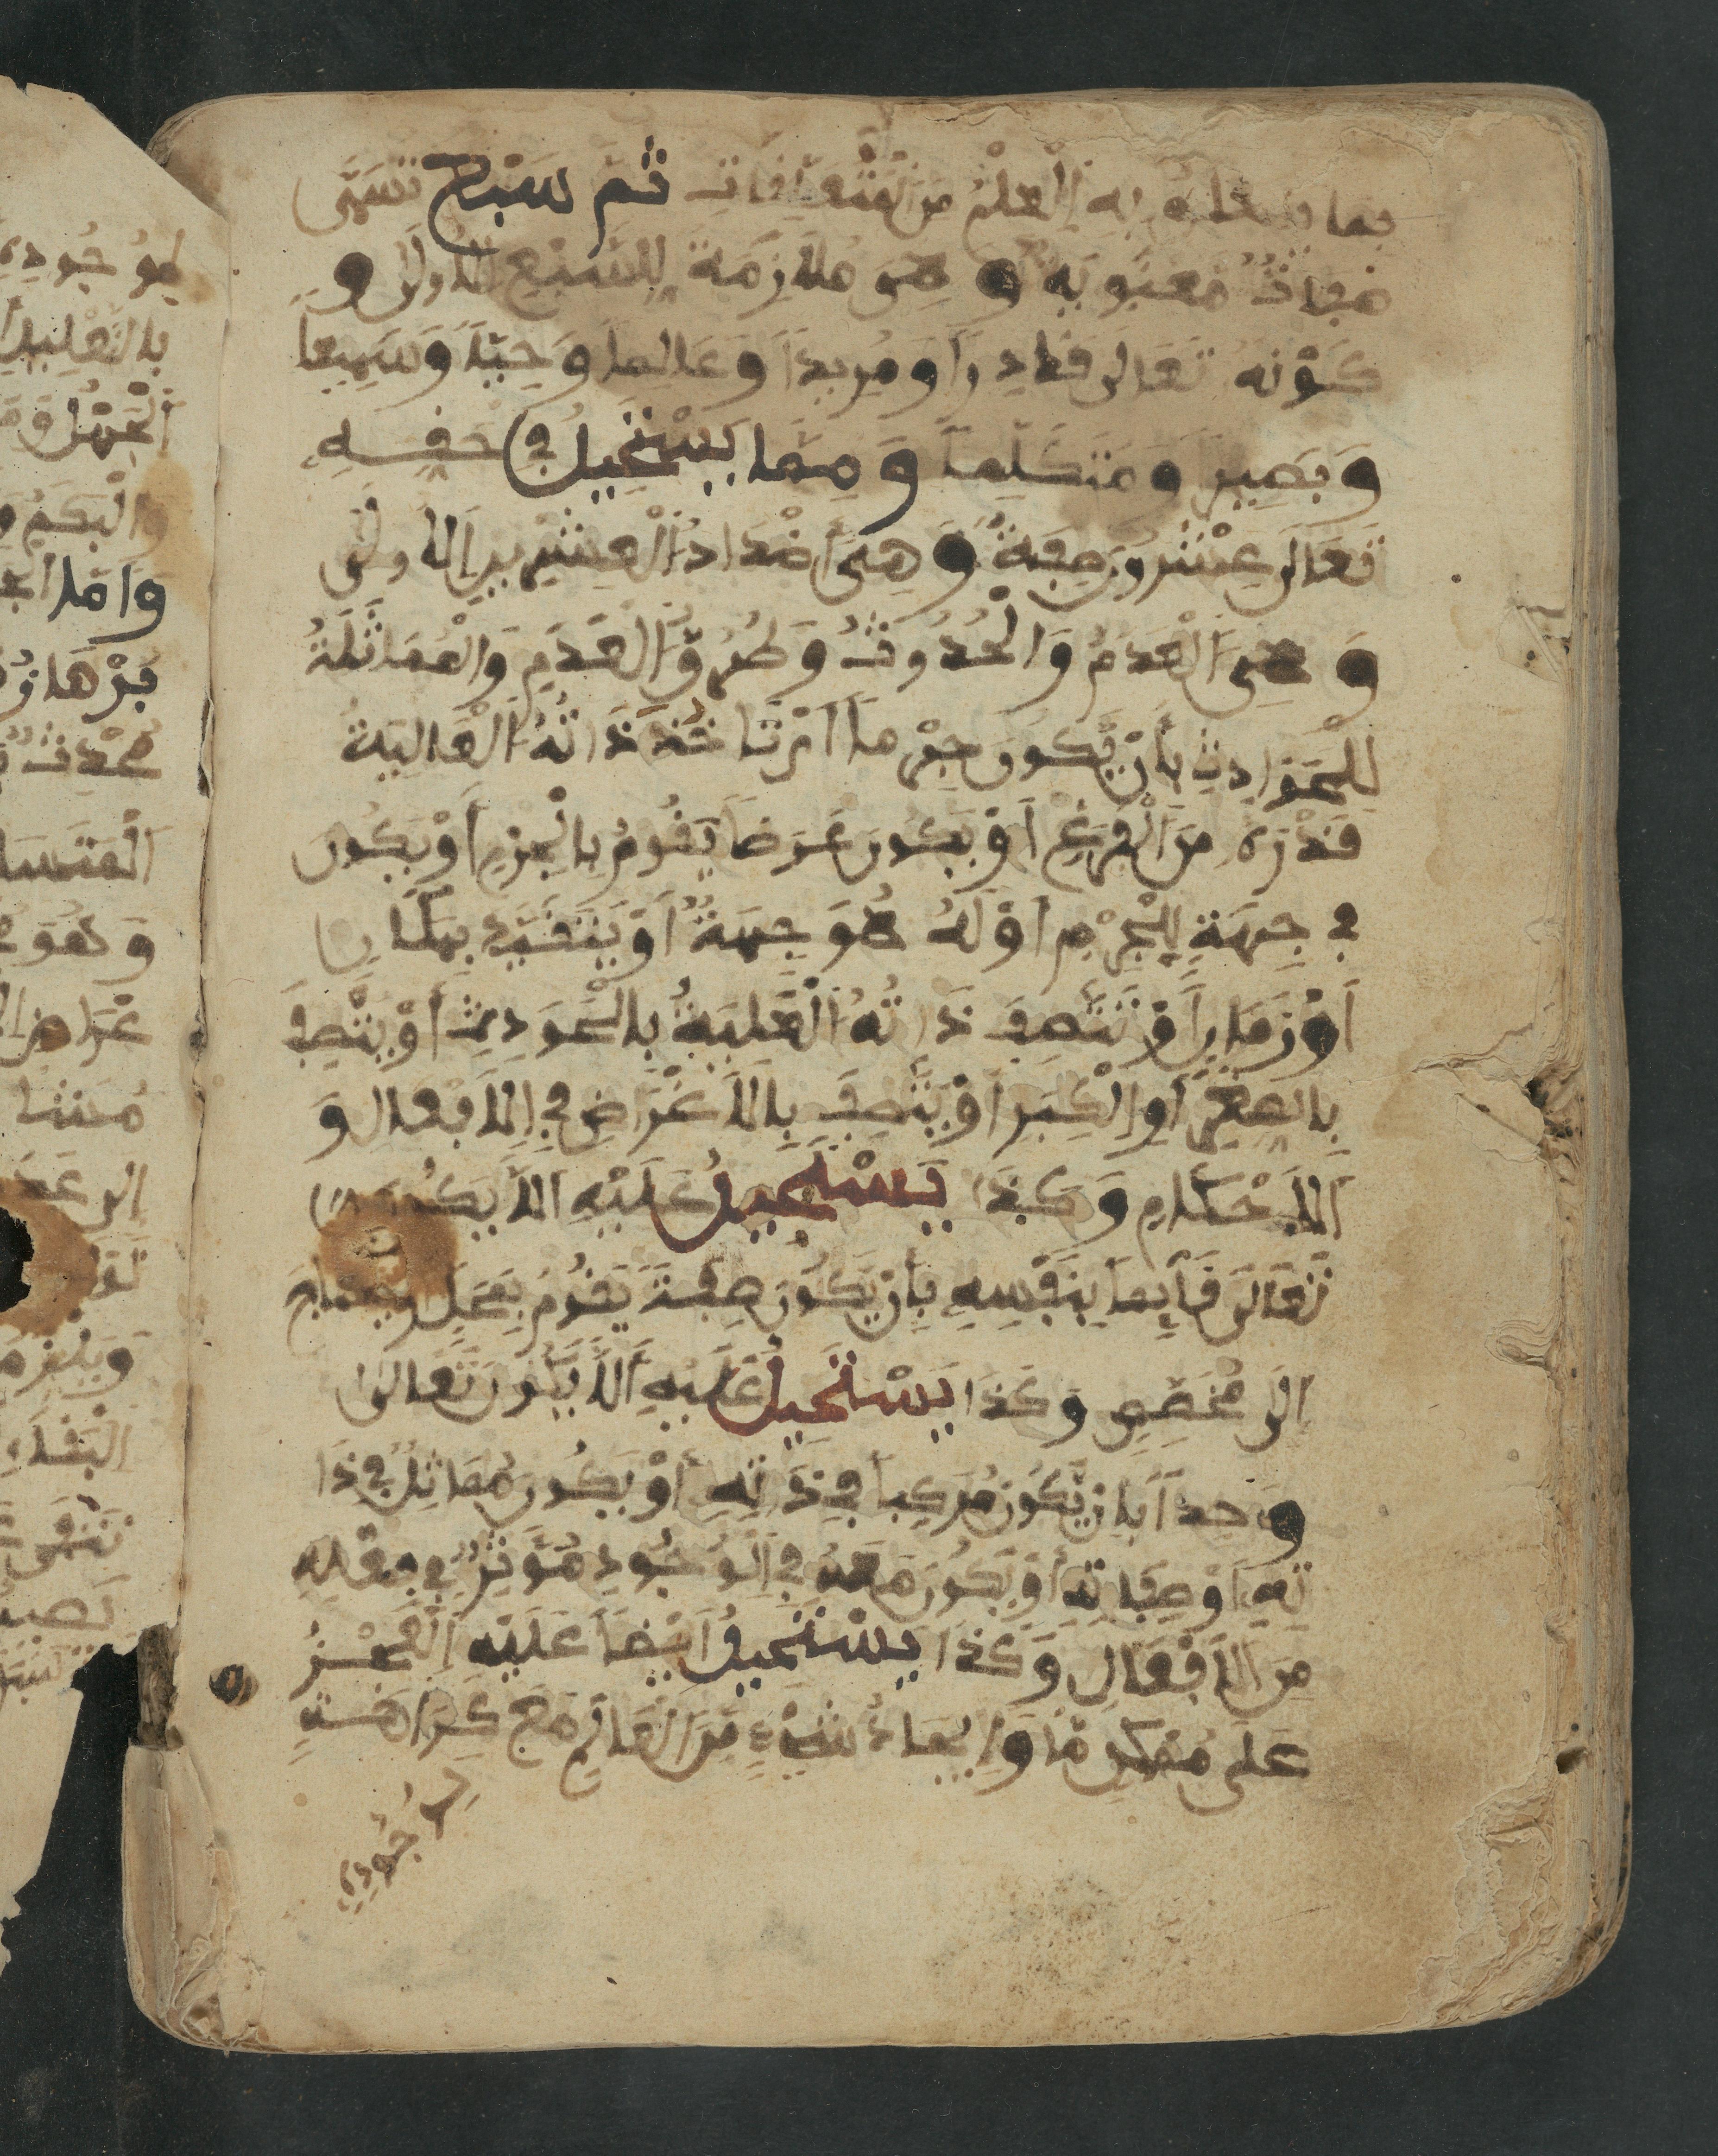 بما يتعلق به العلم من المتعلقات ثم سبع تسمى
صفات معنوية وهي ملازمة للسبع الأولى و
كونه تعالى قادرا ومريدا وعالما وحيا وسميعا
وبصيرا ومتكلما ومما يستحيل في حقه
تعالى عشرون صفة وهي أضداد العشرين الأولى
وهي العدم والحدوث وطرو العدم والمماثلة
للحوادث بأن يكون جرما أي تأخذ ذاته العالية
قدره من الفرغ أو يكون عرضا يقوم بالجرم أو يكون
في جهة للجرم أو له هو جهة أو يتقيد بمكان
أو زمان أو تتصف ذاته العلية بالحوادث أو يتصف
بالصغر أو الكبر أو يتصف بالأغراض في الأفعال و
الأحكام وكذا يستحيل عليه ألا يكون
تعالى قائما بنفسه بأن يكون صفة يقوم بمحل أو يحتاج
الى مخصص وكذا يستحيل عليه ألا يكون تعالى
وحدا بأن يكون مركبا في ذاته أو يكون مماثل في ذا
ته أو صفاته أو يكون معه في الوجود مؤثر في فعله
من الأفعال وكذا يستحيل أيضا عليه العجز
على ممكن ما وإيجاد شيء من العالم مع كراهته
لوجوده
لوجوده
بالتعليل
الجهل و
والبكم و
وأما
برهان
محدث
وهو
الى